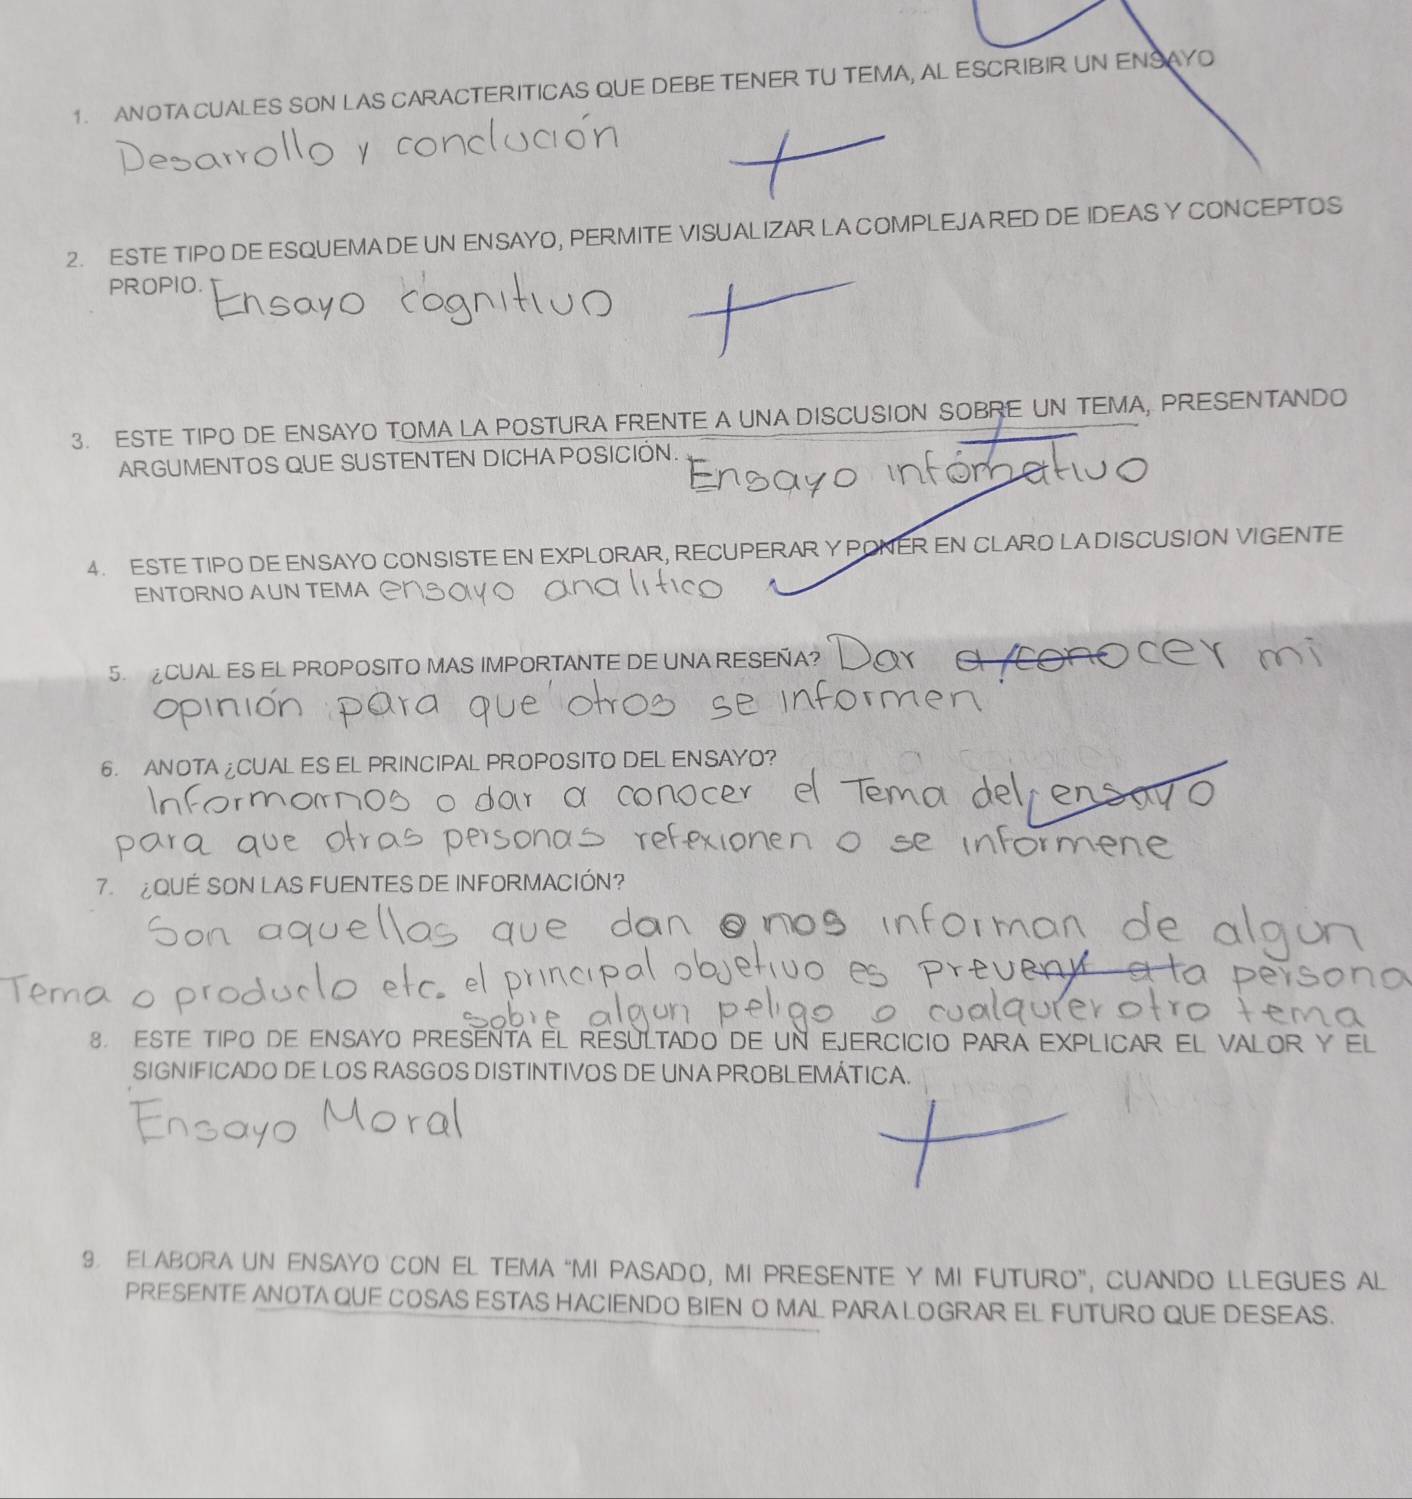 1. ANOTA CUALES SON LAS CARACTERITICAS QUE DEBE TENER TU TEMA, AL ESCRIBIR UN ENSAYO
Desarrollo y conclución
2. ESTE TIPO DE ESQUEMA DE UN ENSAYO, PERMITE VISUALIZAR LA COMPLEJA RED DE IDEAS Y CONCEPTOS
PROPIO. Ensayo cognitivo
3. ESTE TIPO DE ENSAYO TOMA LA POSTURA FRENTE A UNA DISCUSION SOBRE UN TEMA, PRESENTANDO
ARGUMENTOS QUE SUSTENTEN DICHA POSICIÓN. Ensayo infomativo
4. ESTE TIPO DE ENSAYO CONSISTE EN EXPLORAR, RECUPERAR Y PONER EN CLARO LA DISCUSION VIGENTE
ENTORNO A UN TEMA ensayo analitico
5. ¿CUAL ES EL PROPOSITO MAS IMPORTANTE DE UNA RESEÑA? Dar a conocer mi
opinión para que otros se informen
6. ANOTA ¿CUAL ES EL PRINCIPAL PROPOSITO DEL ENSAYO?
Informarnos o dar a conocer el Tema del ensayo
para que otras personas refexionen o se informene
7. ¿QUÉ SON LAS FUENTES DE INFORMACIÓN?
Son aquellas que dan o nos informan de algun
Tema o producto etc. el principal objetivo es preveny a ta persona
sobre algun peligo o cualquier otro tema
8. ESTE TIPO DE ENSAYO PRESENTA EL RESULTADO DE UN EJERCICIO PARA EXPLICAR EL VALOR Y EL
SIGNIFICADO DE LOS RASGOS DISTINTIVOS DE UNA PROBLEMÁTICA.
Ensayo Moral
9. ELABORA UN ENSAYO CON EL TEMA "MI PASADO, MI PRESENTE Y MI FUTURO", CUANDO LLEGUES AL
PRESENTE ANOTA QUE COSAS ESTAS HACIENDO BIEN O MAL PARA LOGRAR EL FUTURO QUE DESEAS.